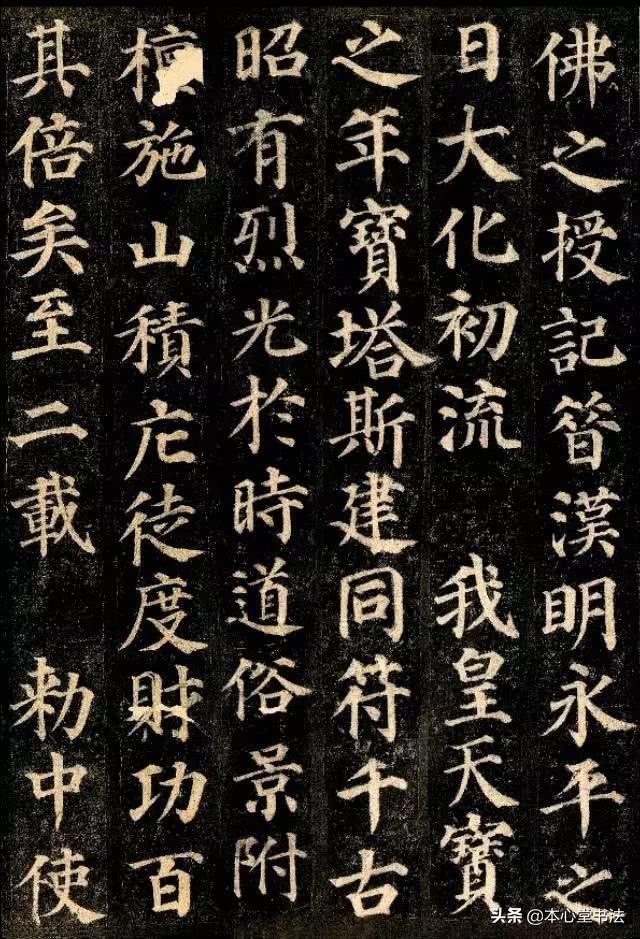 佛之授記昔漢明永平之
日大化初流 我皇天寶
之年寶塔斯建同符千古
昭有烈光於時道俗景附
檀施山積庀徒度財功百
其倍矣至二載 勅中使
头条 @本心堂书法